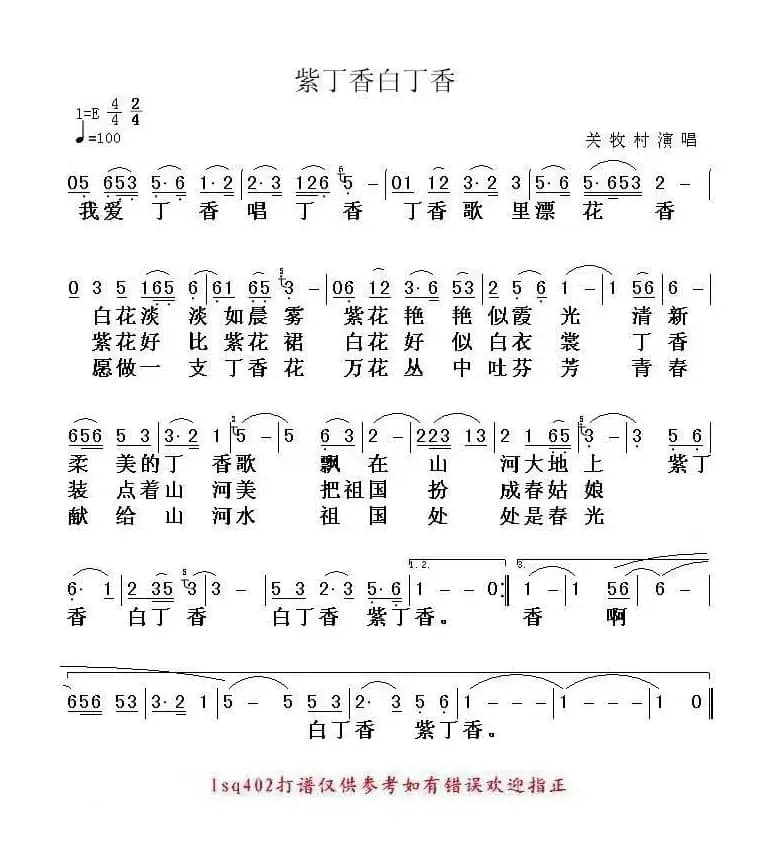 紫丁香白丁香
1=E 4/4 2/4
♩=100
关牧村演唱
05 653 5· 6 1· 2 | 2· 3 126 6 5 - | 01 12 3· 2 3 | 5· 6 5· 653 2 - |
我爱丁香唱丁香 丁香歌里漂花香
0 3 5 165 6 | 61 65 5 3 - | 06 12 3· 6 53 | 2 5 6 1 - | 1 56 6 - |
白花淡淡如晨雾 紫花艳艳似霞光 清新
紫花好比紫花裙 白花好似白衣裳 丁香
愿做一支丁香花 万花丛中吐芬芳 青春
656 5 3 | 3· 2 1 5 - | 5 6 3 | 2 - | 223 13 | 2 1 65 5 3 - | 3 5 6 |
柔美的丁香歌 飘在山河大地上 紫丁
装点着山河美 把祖国扮成春姑娘
献给山河水 祖国处处是春光
6· 1 | 2 35 5 3 | 3 - | 5 3 2· 3 | 5· 6 | 1.2. 1 - 1 - 0 :| 3. 1 - | 1 56 | 6 - |
香 白丁香 白丁香 紫丁香。 香 啊
656 53 | 3· 2 1 | 5 - 5 5 3 | 2· 3 5 6 | 1 - | 1 - | 1 - | 1 0 ||
白丁香 紫丁香。
lsq402打谱仅供参考如有错误欢迎指正